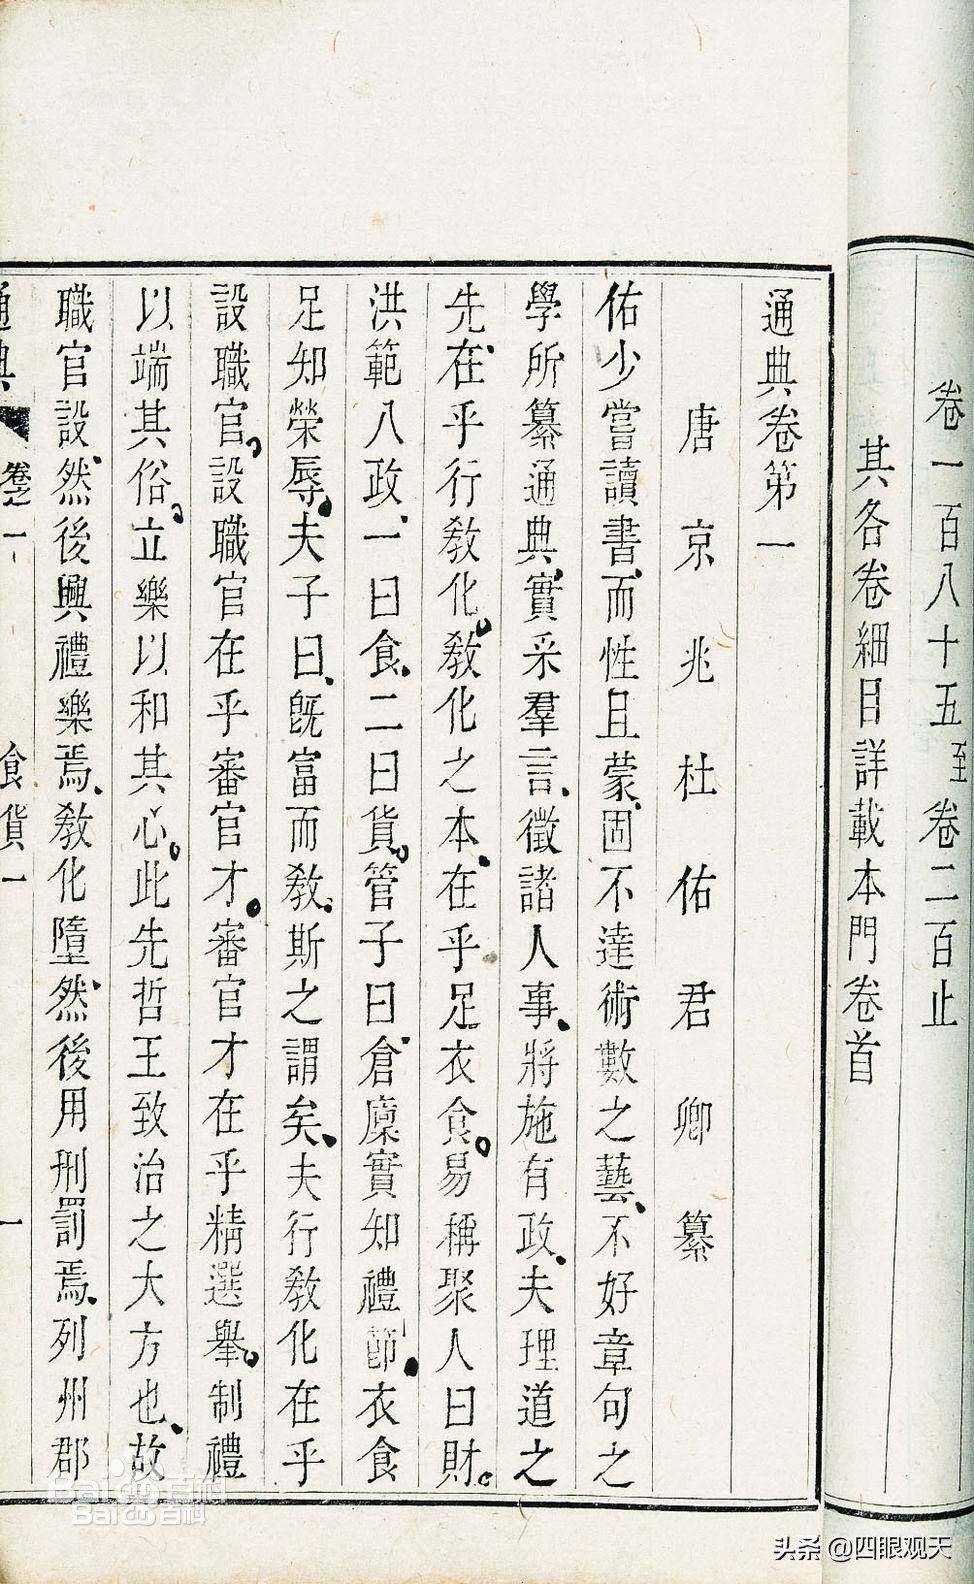 卷一百八十五至卷二百止
其各卷細目詳載本門卷首
通典卷第一
唐京兆杜佑君卿纂
佑少嘗讀書、而性且蒙、固不達術數之藝、不好章句之
學所纂通典、實采羣言、徵諸人事、將施有政、夫理道之
先、在乎行敎化。敎化之本、在乎足衣食。易稱聚人曰財。
洪範八政、一曰食、二曰貨。管子曰、倉廩實知禮節、衣食
足知榮辱、夫子曰、旣富而敎、斯之謂矣、夫行敎化在乎
設職官。設職官在乎審官才。審官才在乎精選舉。制禮
以端其俗。立樂以和其心。此先哲王致治之大方也、故
職官設、然後興禮樂焉、敎化墮、然後用刑罰焉、列州郡
通典 卷之一 食貨一 一
Bai百科
Bai百科
头条 @四眼观天